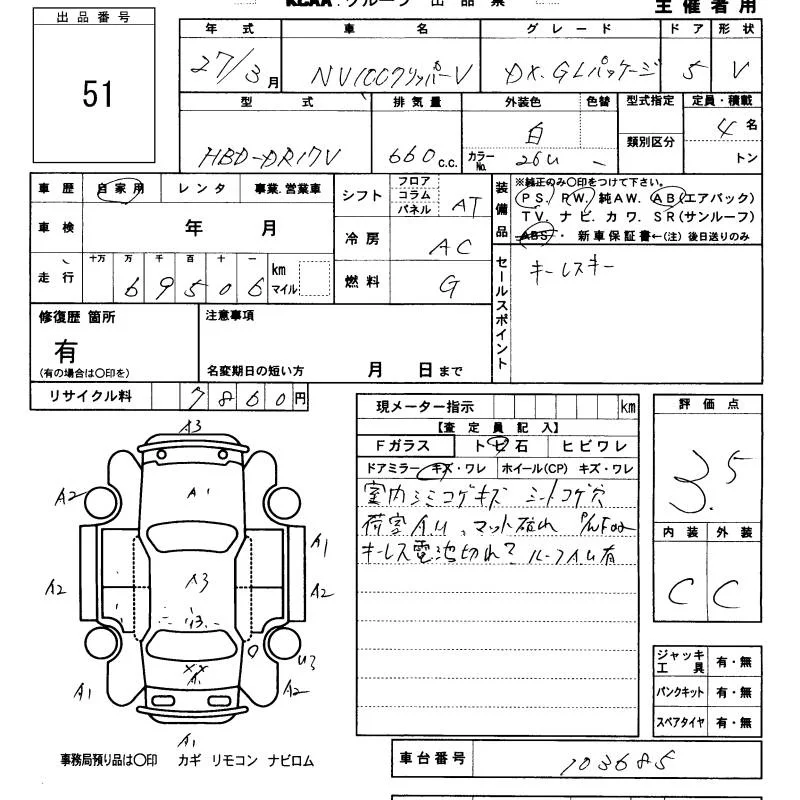 KCAA.グループ 出品票
主催者用
出品番号
51
年式 車名 グレード ドア 形状
27/3月 NV100クリッパーV DX.GLパッケージ 5 V
型式 排気量 外装色 色替 型式指定 定員・積載
HBD-DR17V 660c.c. 白 類別区分 4名
カラーNo. 26U - トン
車歴 自家用 レンタ 事業.営業車
車検 年 月
走行 十万 万 千 百 十 一
69506 km マイル
シフト フロア コラム パネル AT
冷房 AC
燃料 G
装備品
※純正のみ〇印をつけて下さい。
PS. PW. 純AW. AB(エアバック)
TV. ナビ. カワ. SR(サンルーフ)
ABS・ 新車保証書←(注) 後日送りのみ
セールスポイント
キーレスキー
修復歴 箇所
有
(有の場合は〇印を)
注意事項
名変期日の短い方 月 日まで
リサイクル料 7860円
現メーター指示 km
【査定員記入】
Fガラス トビ石 ヒビワレ
ドアミラー キズ・ワレ ホイール(CP) キズ・ワレ
室内シミコゲキズ シートコゲ穴
荷室AU、マット破れ
キーレス電池切れ? ルーフAU有
評価点
3.5
内装 外装
C C
ジャッキ工具 有・無
パンクキット 有・無
スペアタイヤ 有・無
A3
A1
A2
A1
A3
A2
A2
13.
U3
XX
A1
A2
A1
A1
事務局預り品は〇印 カギ リモコン ナビロム
車台番号 103685